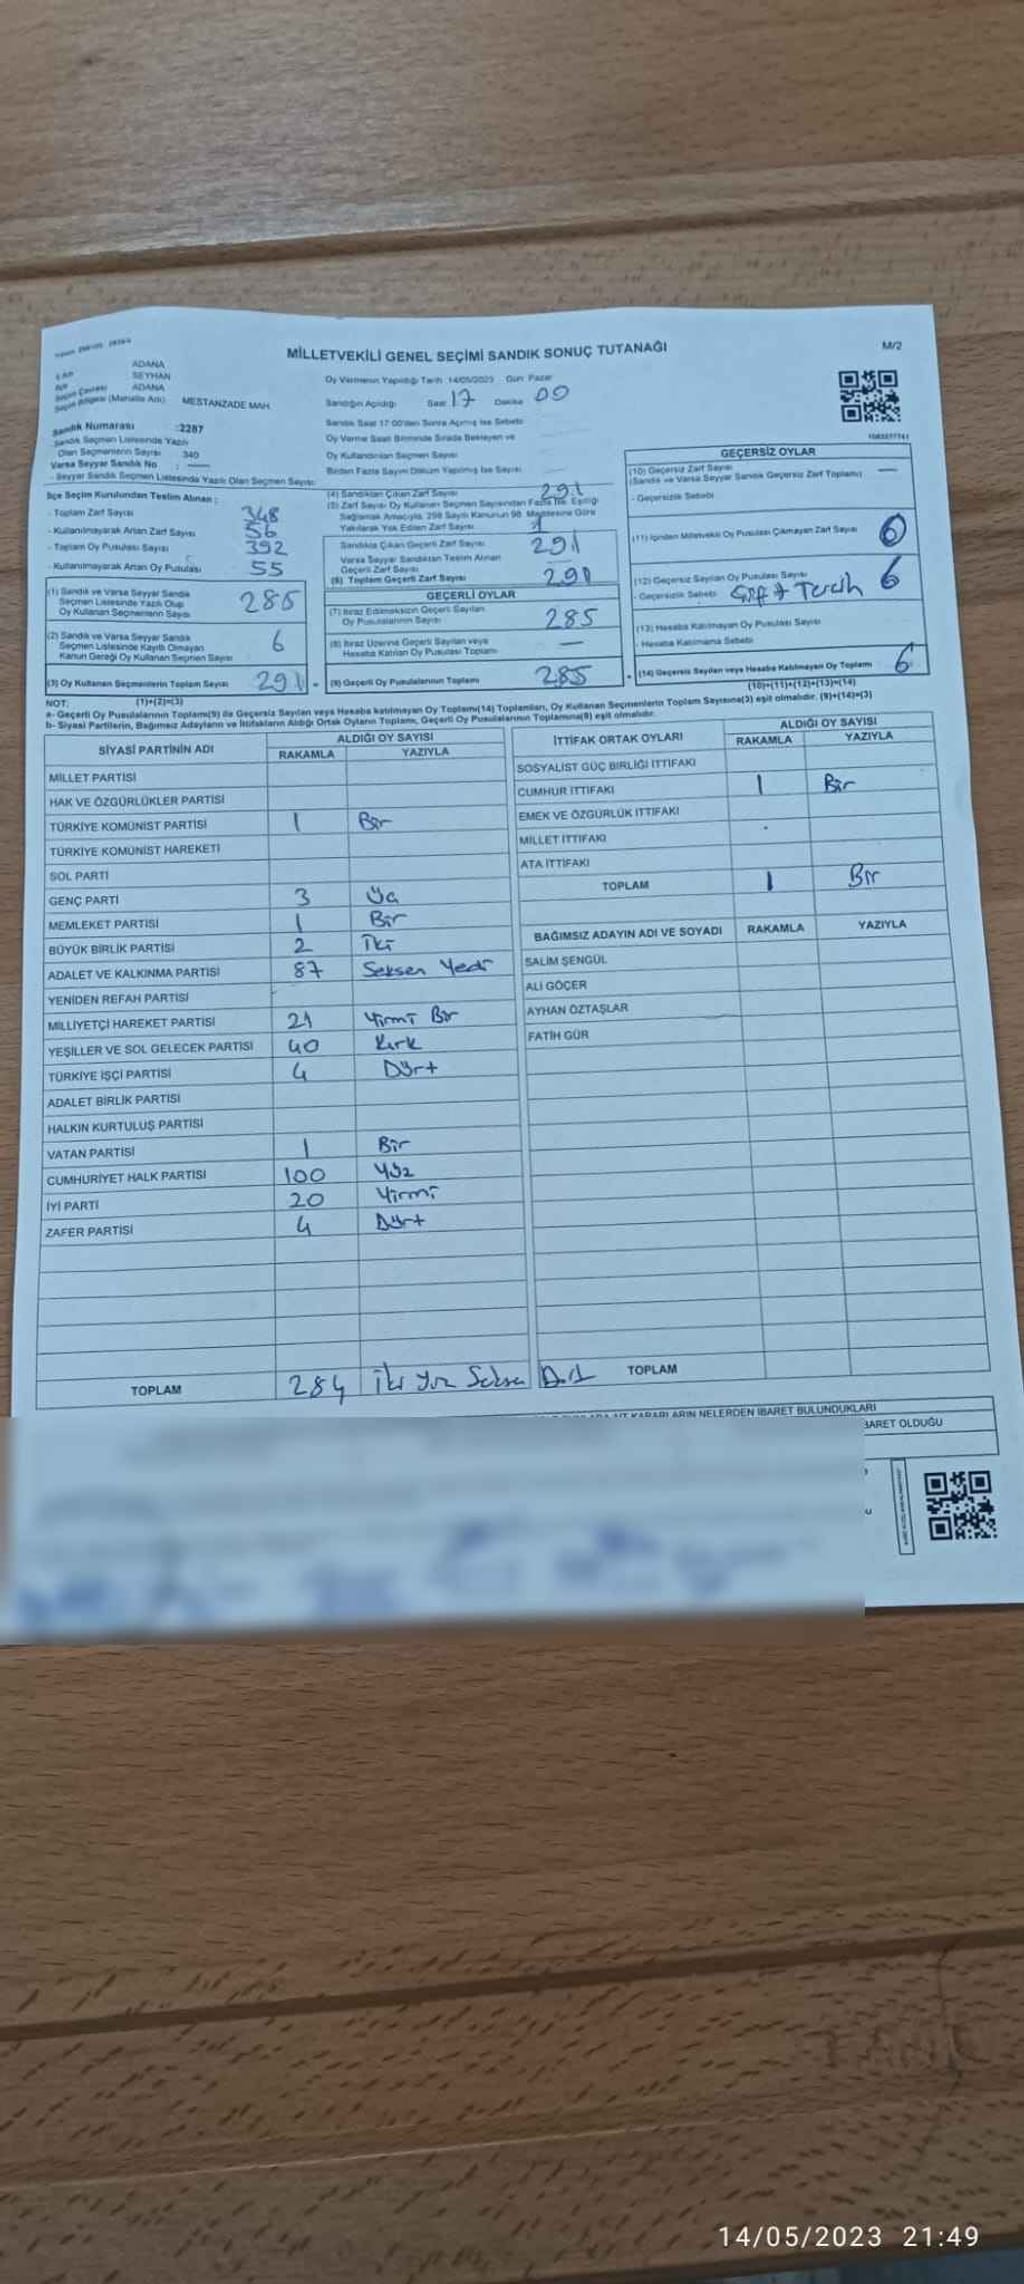 MİLLETVEKİLİ GENEL SEÇİMİ SANDIK SONUÇ TUTANAĞI
M/2
ADANA
SEYHAN
ADANA
MESTANZADE MAH.
Oy Vermenin Yapıldığı Tarih :14/05/2023 Gün: Pazar
Sandığın Açıldığı Saat 17 Dakika 00
Sandık Numarası :2287
Sandık Seçmen Listesinde Yazılı
Olan Seçmenlerin Sayısı 340
Varsa Seyyar Sandık No :
- Seyyar Sandık Seçmen Listesinde Yazılı Olan Seçmen Sayısı:
Sandık Saat 17:00'den Sonra Açılmış İse Sebebi:
Oy Verme Saati Bitiminde Sırada Bekleyen ve
Oy Kullandırılan Seçmen Sayısı
Birden Fazla Sayım Döküm Yapılmış İse Sayısı
İlçe Seçim Kurulundan Teslim Alınan :
- Toplam Zarf Sayısı 348
- Kullanılmayarak Artan Zarf Sayısı 56
- Toplam Oy Pusulası Sayısı 392
- Kullanılmayarak Artan Oy Pusulası 55
(1) Sandık ve Varsa Seyyar Sandık
Seçmen Listesinde Yazılı Olup
Oy Kullanan Seçmenlerin Sayısı 285
(2) Sandık ve Varsa Seyyar Sandık
Seçmen Listesinde Kayıtlı Olmayan
Kanun Gereği Oy Kullanan Seçmen Sayısı 6
(3) Oy Kullanan Seçmenlerin Toplam Sayısı 291
(1)+(2)=(3)
(4) Sandıktan Çıkan Zarf Sayısı 291
(5) Zarf Sayısı Oy Kullanan Seçmen Sayısından Fazla İse, Eşitliği
Sağlamak Amacıyla, 298 Sayılı Kanunun 98. Maddesine Göre
Yakılarak Yok Edilen Zarf Sayısı
Sandıkta Çıkan Geçerli Zarf Sayısı 291
Varsa Seyyar Sandıktan Teslim Alınan
Geçerli Zarf Sayısı
(6) Toplam Geçerli Zarf Sayısı 291
GEÇERLİ OYLAR
(7) İtiraz Edilmeksizin Geçerli Sayılan
Oy Pusulalarının Sayısı 285
(8) İtiraz Üzerine Geçerli Sayılan veya
Hesaba Katılan Oy Pusulası Toplamı —
(9) Geçerli Oy Pusulalarının Toplamı 285
GEÇERSİZ OYLAR
(10) Geçersiz Zarf Sayısı
(Sandık ve Varsa Seyyar Sandık Geçersiz Zarf Toplamı) —
- Geçersizlik Sebebi
(11) İçinden Milletvekili Oy Pusulası Çıkmayan Zarf Sayısı
(12) Geçersiz Sayılan Oy Pusulası Sayısı 6
- Geçersizlik Sebebi Çift Tercih
(13) Hesaba Katılmayan Oy Pusulası Sayısı
- Hesaba Katılmama Sebebi
(14) Geçersiz Sayılan veya Hesaba Katılmayan Oy Toplamı 6
(10)+(11)+(12)+(13)=(14)
NOT:
a- Geçerli Oy Pusulalarının Toplamı(9) ile Geçersiz Sayılan veya Hesaba katılmayan Oy Toplamı(14) Toplamları, Oy Kullanan Seçmenlerin Toplam Sayısına(3) eşit olmalıdır. (9)+(14)=(3)
b- Siyasi Partilerin, Bağımsız Adayların ve İttifakların Aldığı Ortak Oyların Toplamı, Geçerli Oy Pusulalarının Toplamına(9) eşit olmalıdır.
SİYASİ PARTİNİN ADI ALDIĞI OY SAYISI
RAKAMLA YAZIYLA
MİLLET PARTİSİ
HAK VE ÖZGÜRLÜKLER PARTİSİ
TÜRKİYE KOMÜNİST PARTİSİ 1 Bir
TÜRKİYE KOMÜNİST HAREKETİ
SOL PARTİ
GENÇ PARTİ 3 Üç
MEMLEKET PARTİSİ 1 Bir
BÜYÜK BİRLİK PARTİSİ 2 İki
ADALET VE KALKINMA PARTİSİ 87 Seksen Yedi
YENİDEN REFAH PARTİSİ
MİLLİYETÇİ HAREKET PARTİSİ 21 Yirmi Bir
YEŞİLLER VE SOL GELECEK PARTİSİ 40 Kırk
TÜRKİYE İŞÇİ PARTİSİ 4 Dört
ADALET BİRLİK PARTİSİ
HALKIN KURTULUŞ PARTİSİ
VATAN PARTİSİ 1 Bir
CUMHURİYET HALK PARTİSİ 100 Yüz
İYİ PARTİ 20 Yirmi
ZAFER PARTİSİ 4 Dört
TOPLAM 284 İki Yüz Seksen Dört
İTTİFAK ORTAK OYLARI ALDIĞI OY SAYISI
RAKAMLA YAZIYLA
SOSYALİST GÜÇ BİRLİĞİ İTTİFAKI
CUMHUR İTTİFAKI 1 Bir
EMEK VE ÖZGÜRLÜK İTTİFAKI
MİLLET İTTİFAKI
ATA İTTİFAKI
TOPLAM 1 Bir
BAĞIMSIZ ADAYIN ADI VE SOYADI RAKAMLA YAZIYLA
SALİM ŞENGÜL
ALİ GÖÇER
AYHAN ÖZTAŞLAR
FATİH GÜR
TOPLAM
KARARLARIN NELERDEN İBARET BULUNDUKLARI
BARET OLDUĞU
14/05/2023 21:49